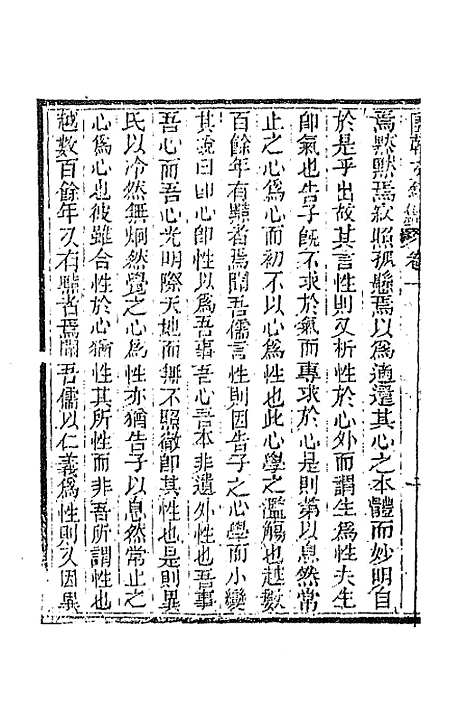 國朝文錄 卷一
焉默默焉寂照孤懸焉以爲適還其心之本體而妙明自
於是乎出故其言性則又析性於心外而謂生爲性夫生
卽氣也告子旣不求於氣而專求於心是則第以息然常
止之心爲心而初不以心爲性也此心學之濫觴也越數
百餘年有黠者焉聞吾儒言性則因告子之心學而小變
其說曰卽心卽性以爲吾事吾心吾本非遺外性也吾事
吾心而吾心光明際天地而無不照徹卽其性也是則異
民以泠然無炯然覺之心爲性亦猶告子以息然常止之
心爲心也彼雖合性於心猶性其所性而非吾所謂性也
越數百餘年又有黠者焉聞吾儒以仁義爲性則又因異